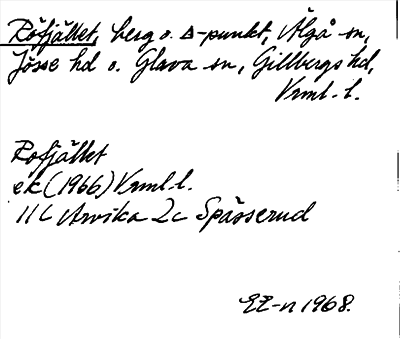 Röfjället, berg o. Δ-punkt, Älgå sn,
Jösse hd o. Glava sn, Gillbergs hd,
Vrml. l.
Rofjället
ek (1966) Vrml. l.
11C Arvika 2c Spässerud
EE-n 1968.